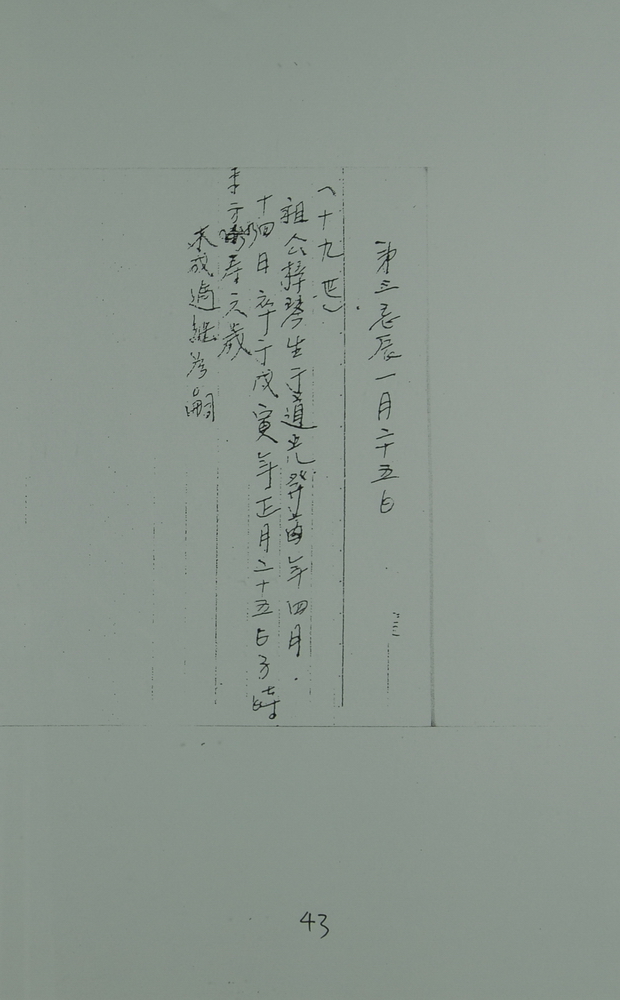 第三忌辰一月二十五日
(十九世)
祖公梓琴生于道光癸酉年四月
十四日卒于戊寅年正月二十五日子時
寿六歲
未成過継為嗣
三
43